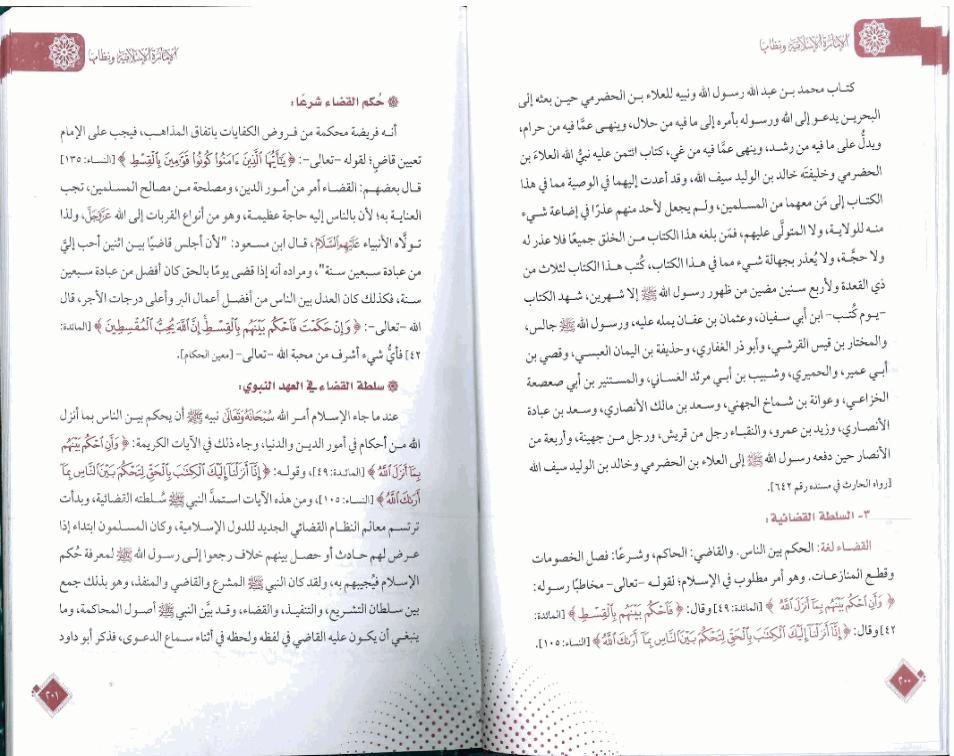 الإمارة الإسلامية ونظامها
كتاب محمد بن عبد الله رسول الله ونبيه للعلاء بن الحضرمي حين بعثه إلى
البحرين يدعو إلى الله ورسوله بأمره إلى ما فيه من حلال، وينهى عمَّا فيه من حرام،
ويدلُّ على ما فيه من رشد، وينهى عمَّا فيه من غي، كتاب ائتمن عليه نبيُّ الله العلاءَ بن
الحضرمي وخليفتَه خالد بن الوليد سيف الله، وقد أعدت إليهما في الوصية مما في هذا
الكتاب إلى مَن معهما من المسلمين، ولم يجعل لأحد منهم عذرًا في إضاعة شيء
منه للولاية، ولا المتولَّى عليهم، فمَن بلغه هذا الكتاب من الخلق جميعًا فلا عذر له
ولا حجَّة، ولا يُعذر بجهالة شيء مما في هذا الكتاب، كُتب هذا الكتاب لثلاث من
ذي القعدة ولأربع سنين مضين من ظهور رسول الله ﷺ إلا شهرين، شهد الكتاب
-يوم كُتب- ابن أبي سفيان، وعثمان بن عفان يمله عليه، ورسول الله ﷺ جالس،
والمختار بن قيس القرشي، وأبو ذر الغفاري، وحذيفة بن اليمان العبسي، وقصي بن
أبي عمير، والحميري، وشبيب بن أبي مرثد الغساني، والمستنير بن أبي صعصعة
الخزاعي، وعوانة بن شماخ الجهني، وسعد بن مالك الأنصاري، وسعد بن عبادة
الأنصاري، وزيد بن عمرو، والنقباء رجل من قريش، ورجل من جهينة، وأربعة من
الأنصار حين دفعه رسول الله ﷺ إلى العلاء بن الحضرمي وخالد بن الوليد سيف الله
[رواه الحارث في مسنده رقم ٦٤٢].
٣- السلطة القضائية:
القضاء لغة: الحكم بين الناس. والقاضي: الحاكم، وشرعًا: فصل الخصومات
وقطع المنازعات. وهو أمر مطلوب في الإسلام؛ لقوله -تعالى- مخاطبًا رسوله:
﴿ وَأَنِ ٱحۡكُم بَيۡنَهُم بِمَآ أَنزَلَ ٱللَّهُ ﴾ [المائدة: ٤٩] وقال: ﴿ فَٱحۡكُم بَيۡنَهُم بِٱلۡقِسۡطِ ﴾ [المائدة:
٤٢] وقال: ﴿ إِنَّآ أَنزَلۡنَآ إِلَيۡكَ ٱلۡكِتَٰبَ بِٱلۡحَقِّ لِتَحۡكُمَ بَيۡنَ ٱلنَّاسِ بِمَآ أَرَىٰكَ ٱللَّهُ ﴾ [النساء: ١٠٥].
٢٠٠
الإمارة الإسلامية ونظامها
حُكم القضاء شرعًا:
أنه فريضة محكمة من فروض الكفايات باتفاق المذاهب، فيجب على الإمام
تعيين قاضٍ؛ لقوله -تعالى-: ﴿ يَٰٓأَيُّهَا ٱلَّذِينَ ءَامَنُواْ كُونُواْ قَوَّٰمِينَ بِٱلۡقِسۡطِ ﴾ [النساء: ١٣٥]
قال بعضهم: القضاء أمر من أمور الدين، ومصلحة من مصالح المسلمين، تجب
العناية به؛ لأن بالناس إليه حاجة عظيمة، وهو من أنواع القربات إلى الله عَزَّوَجَلَّ، ولذا
تولَّاه الأنبياء عَلَيْهِمُ السَّلَامُ، قال ابن مسعود: "لأن أجلس قاضيًا بين اثنين أحب إليَّ
من عبادة سبعين سنة"، ومراده أنه إذا قضى يومًا بالحق كان أفضل من عبادة سبعين
سنة، فكذلك كان العدل بين الناس من أفضل أعمال البر وأعلى درجات الأجر، قال
الله -تعالى-: ﴿ وَإِنۡ حَكَمۡتَ فَٱحۡكُم بَيۡنَهُم بِٱلۡقِسۡطِۚ إِنَّ ٱللَّهَ يُحِبُّ ٱلۡمُقۡسِطِينَ ﴾ [المائدة:
٤٢] فأيُّ شيء أشرف من محبة الله -تعالى- [معين الحكام].
سلطة القضاء في العهد النبوي:
عند ما جاء الإسلام أمر الله سُبْحَانَهُ وَتَعَالَى نبيه ﷺ أن يحكم بين الناس بما أنزل
الله من أحكام في أمور الدين والدنيا، وجاء ذلك في الآيات الكريمة: ﴿ وَأَنِ ٱحۡكُم بَيۡنَهُم
بِمَآ أَنزَلَ ٱللَّهُ ﴾ [المائدة: ٤٩]، وقوله: ﴿ إِنَّآ أَنزَلۡنَآ إِلَيۡكَ ٱلۡكِتَٰبَ بِٱلۡحَقِّ لِتَحۡكُمَ بَيۡنَ ٱلنَّاسِ بِمَآ
أَرَىٰكَ ٱللَّهُ ﴾ [النساء: ١٠٥]، ومن هذه الآيات استمدَّ النبي ﷺ سُلطته القضائية، وبدأت
ترتسم معالم النظام القضائي الجديد للدول الإسلامية، وكان المسلمون ابتداء إذا
عرض لهم حادث أو حصل بينهم خلاف رجعوا إلى رسول الله ﷺ لمعرفة حُكم
الإسلام فيُجيبهم به، ولقد كان النبي ﷺ المشرع والقاضي والمنفذ، وهو بذلك جمع
بين سلطان التشريع، والتنفيذ، والقضاء، وقد بيَّن النبي ﷺ أصول المحاكمة، وما
ينبغي أن يكون عليه القاضي في لفظه ولحظه في أثناء سماع الدعوى، فذكر أبو داود
٢٠١